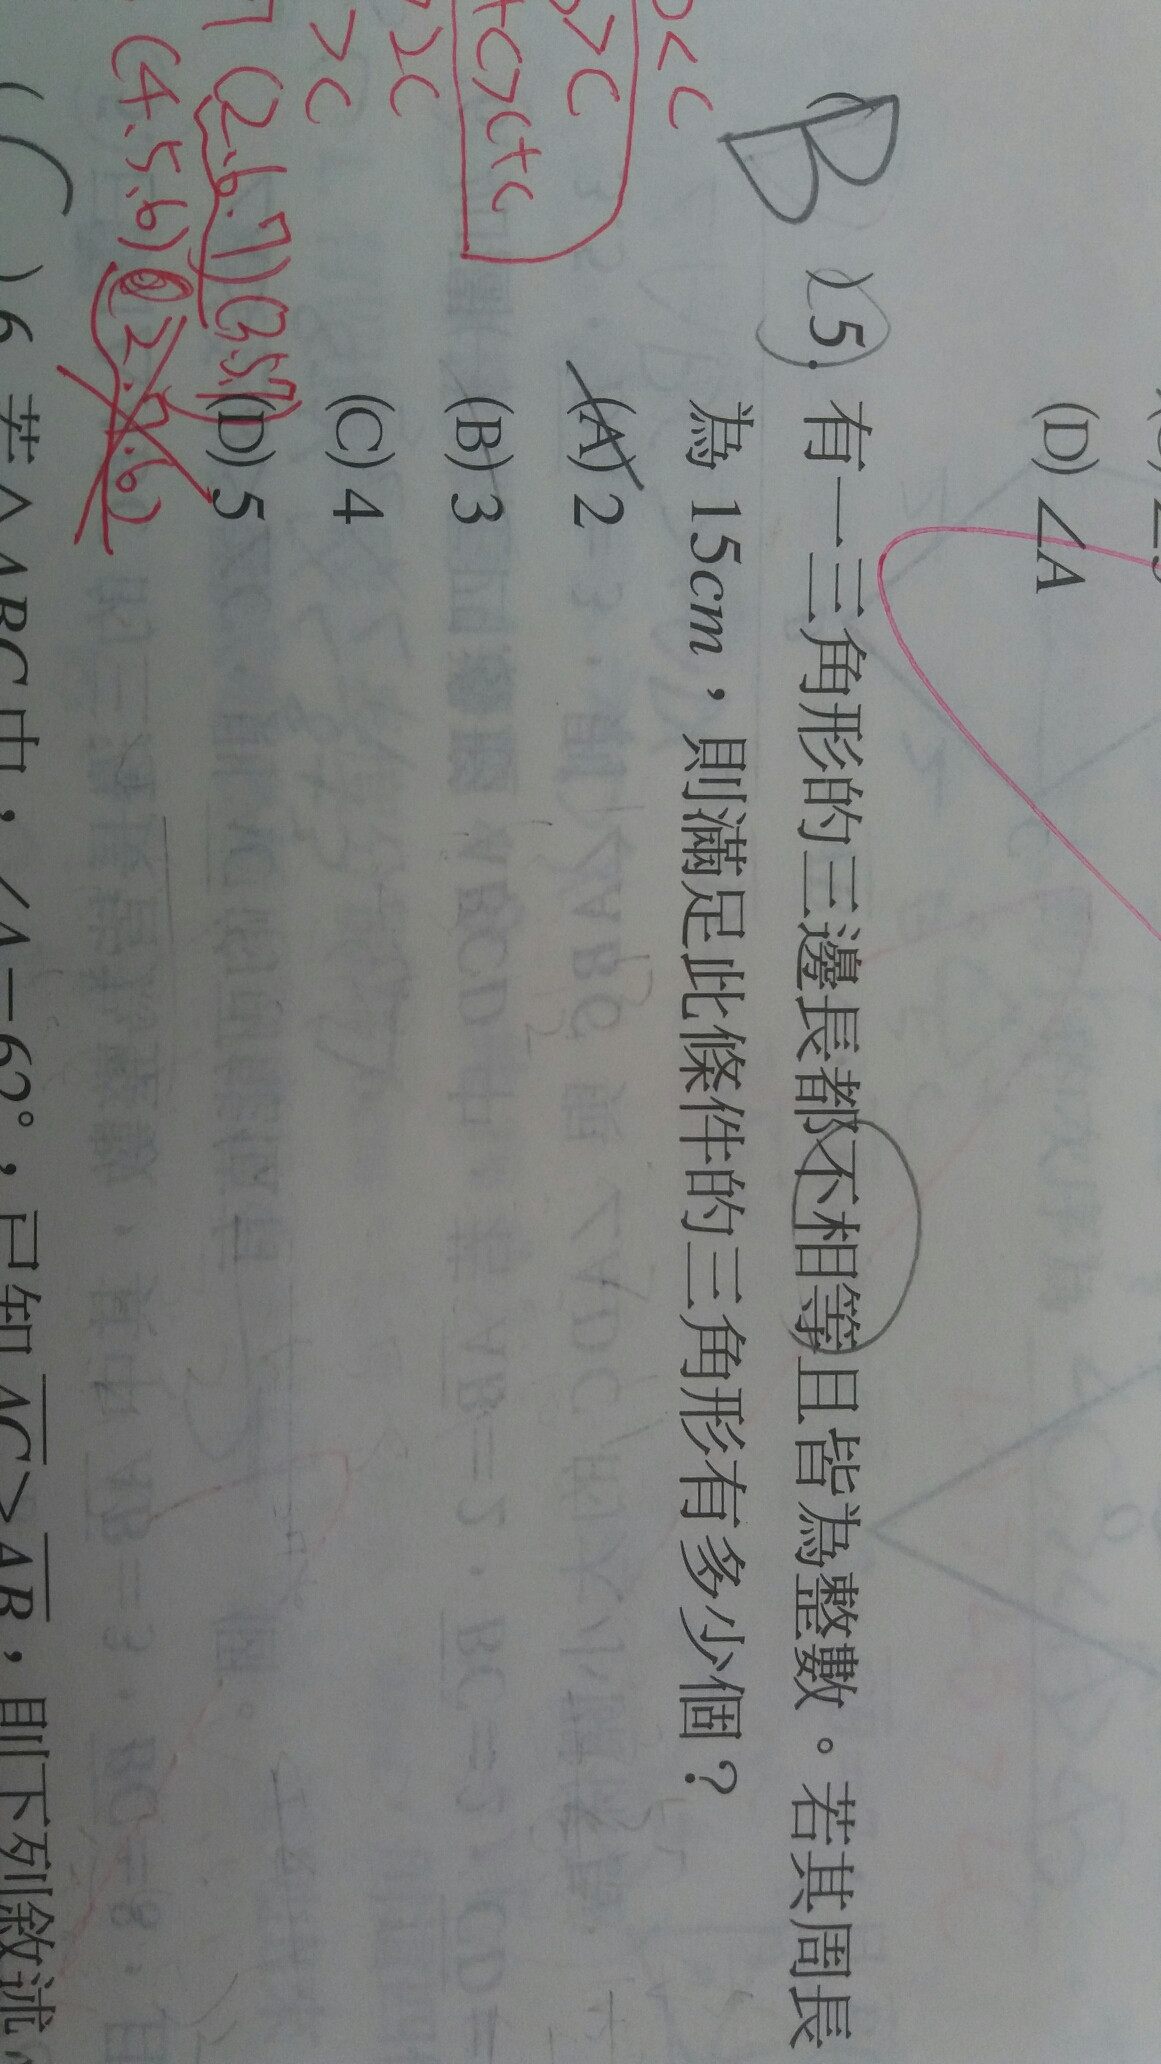 (D) ∠A
B
)5. 有一三角形的三邊長都不相等且皆為整數。若其周長
為 15cm,則滿足此條件的三角形有多少個?
(A) 2
(B) 3
(C) 4
(D) 5
b<c
b>c
+c>c+c
>c
>c
(2.6.7)(3.5.7)
(4.5.6)(2.7.6)
)6. 若△ABC中,∠A=62°,已知AC>AB,則下列敘述